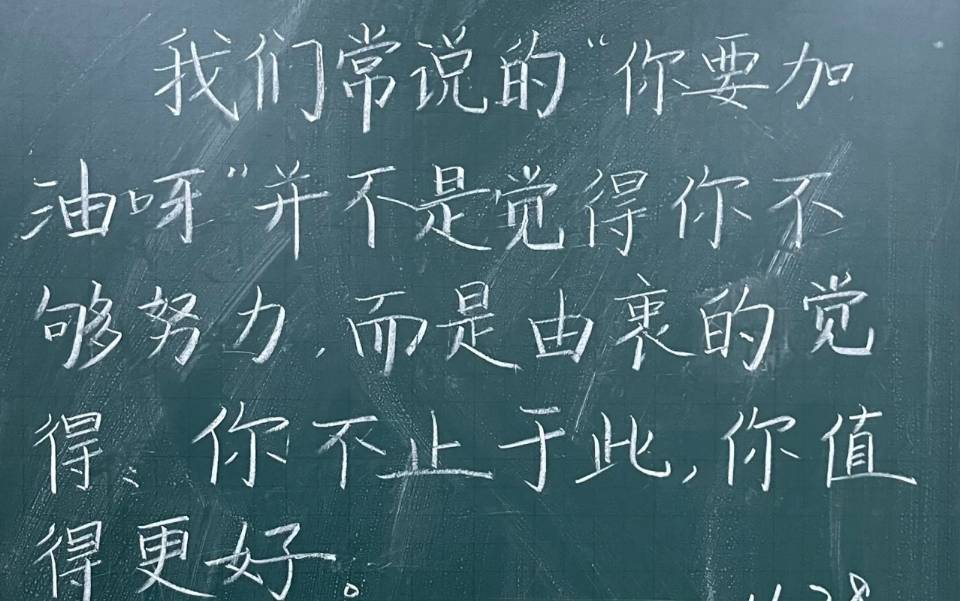 我们常说的“你要加
油呀”并不是觉得你不
够努力,而是由衷的觉
得、你不止于此,你值
得更好。